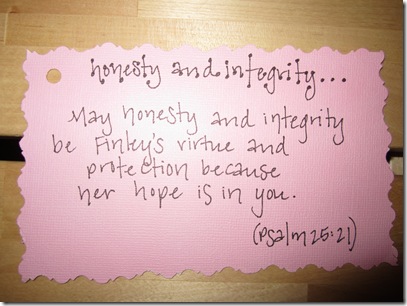 honesty and integrity...
May honesty and integrity
be Finley's virtue and
protection because
her hope is in you.
(Psalm 25:21)